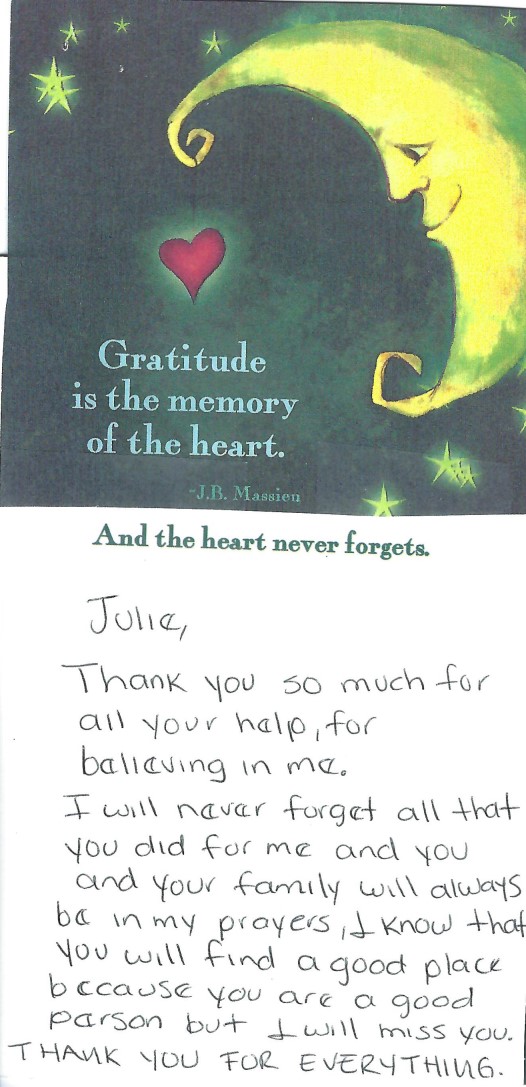 Gratitude
is the memory
of the heart.
-J.B. Massieu
And the heart never forgets.
Julie,
Thank you so much for
all your help, for
believing in me.
I will never forget all that
you did for me and you
and your family will always
be in my prayers, I know that
you will find a good place
because you are a good
person but I will miss you.
THANK YOU FOR EVERYTHING.